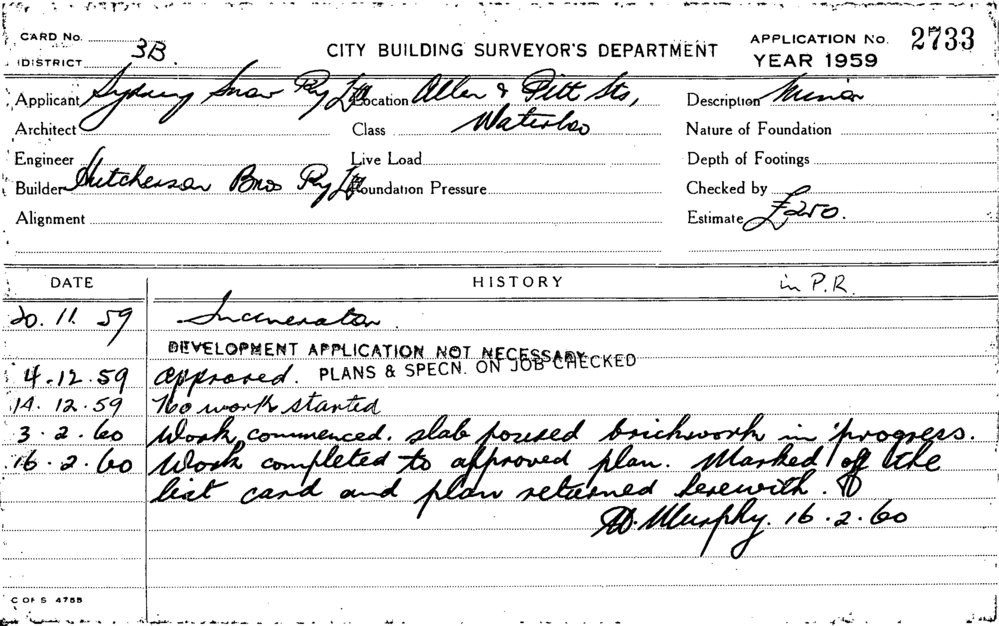 CARD No.
DISTRICT 3B.
CITY BUILDING SURVEYOR'S DEPARTMENT
APPLICATION No. 2733
YEAR 1959
Applicant Sydney Snow Pty Ltd Location Allen & Pitt Sts, Description Minor
Architect Class Waterloo Nature of Foundation
Engineer Live Load Depth of Footings
Builder Hutcherson Bros Pty Ltd Foundation Pressure Checked by
Alignment Estimate £250.
DATE HISTORY in P.R.
20. 11. 59 Incinerator.
DEVELOPMENT APPLICATION NOT NECESSARY
4.12.59 approved. PLANS & SPECN. ON JOB CHECKED
14.12.59 No work started
3.2.60 Work commenced. slab poured brickwork in progress.
16.2.60 Work completed to approved plan. Marked off the
list card and plan returned herewith.
Murphy. 16.2.60
C OF S 4755